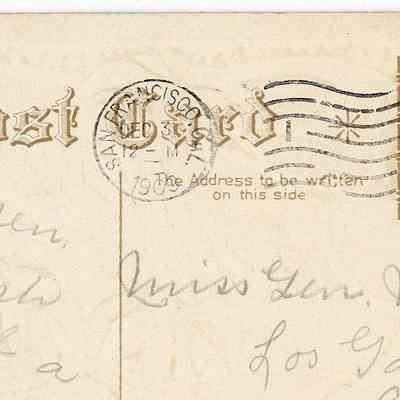 ost Card
SAN FRANCISCO, CAL.
DEC 3
12 - M
190
The Address to be written
on this side
en,
Miss Gen.
Los Ga
a